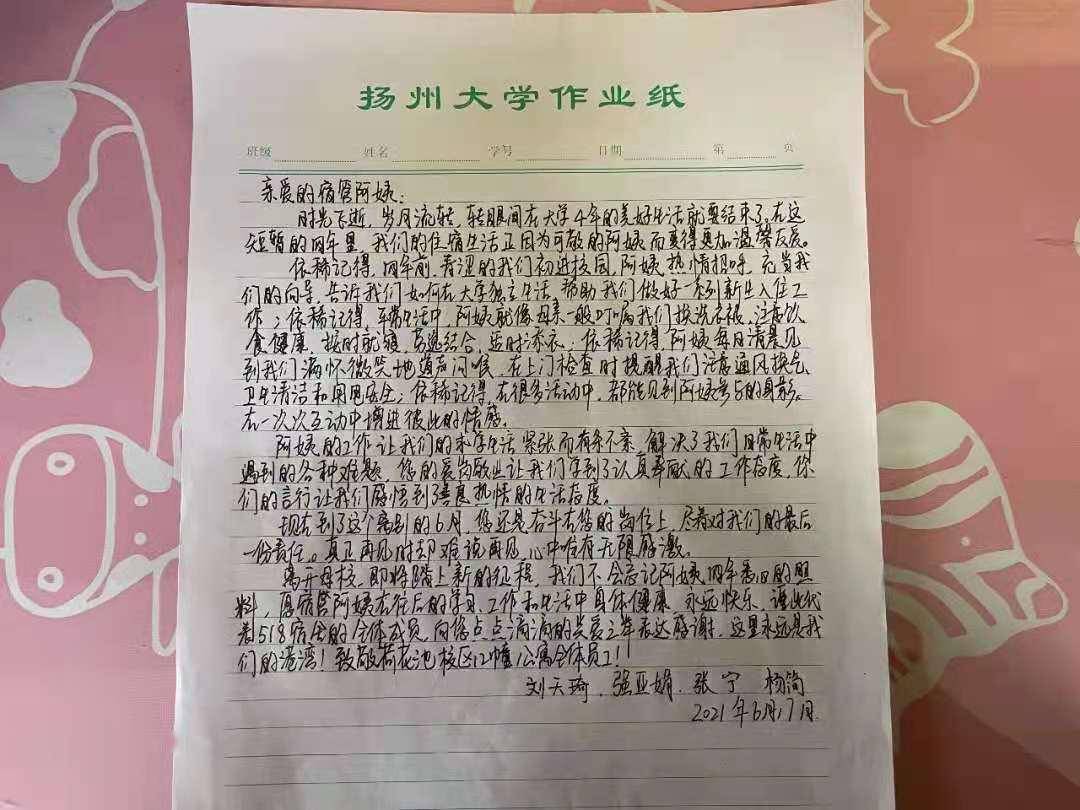 扬州大学作业纸
班级 姓名 学号 日期 第 页
亲爱的宿管阿姨：
时光飞逝，岁月流转，转眼间在大学4年的美好生活就要结束了。在这
短暂的四年里，我们的住宿生活正因为可敬的阿姨而变得更加温馨友爱。
依稀记得，四年前，青涩的我们初进校园，阿姨热情招呼，充当我
们的向导，告诉我们如何在大学独立生活，帮助我们做好一系列新生入住工
作；依稀记得，平常生活中，阿姨就像母亲一般叮嘱我们换洗衣服，注意饮
食健康，按时就寝，劳逸结合，适时添衣；依稀记得，阿姨每日清晨见
到我们满怀微笑地道声问候，在上门检查时提醒我们注意通风换气
卫生清洁和用电安全；依稀记得，在很多活动中，都能见到阿姨参与的身影。
在一次次互动中增进彼此的情感。
阿姨的工作让我们的求学生活紧张而有条不紊，解决了我们日常生活中
遇到的各种难题，您的爱岗敬业让我们学到了认真奉献的工作态度，你
们的言行让我们感悟到善良热情的生活态度。
现在到了这个离别的6月，您还是奋斗在您的岗位上，尽着对我们的最后
一份责任。真正再见时却难说再见，心中唯有无限感激。
离开母校，即将踏上新的征程，我们不会忘记阿姨四年悉心的照
料，愿宿管阿姨在往后的学习、工作和生活中身体健康，永远快乐，谨此代
表518宿舍的全体成员，向您点点滴滴的关爱之举表达感谢，这里永远是我
们的港湾！致敬荷花池校区12幢公寓全体员工！！
刘天琦、强亚娟、张宁 杨简
2021年6月17日